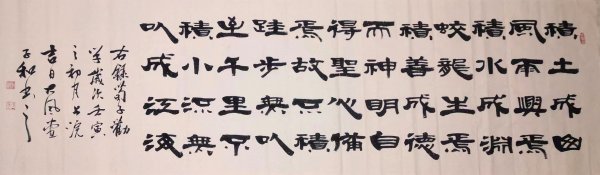 積土成山
風雨興焉
積水成淵
蛟龍生焉
積善成德
而神明自
得聖心備
焉故不積
跬步無以
至千里不
積小流無
以成江海
右錄荀子勸
學歲次壬寅
之初月上浣
吉日大風堂
子和書之